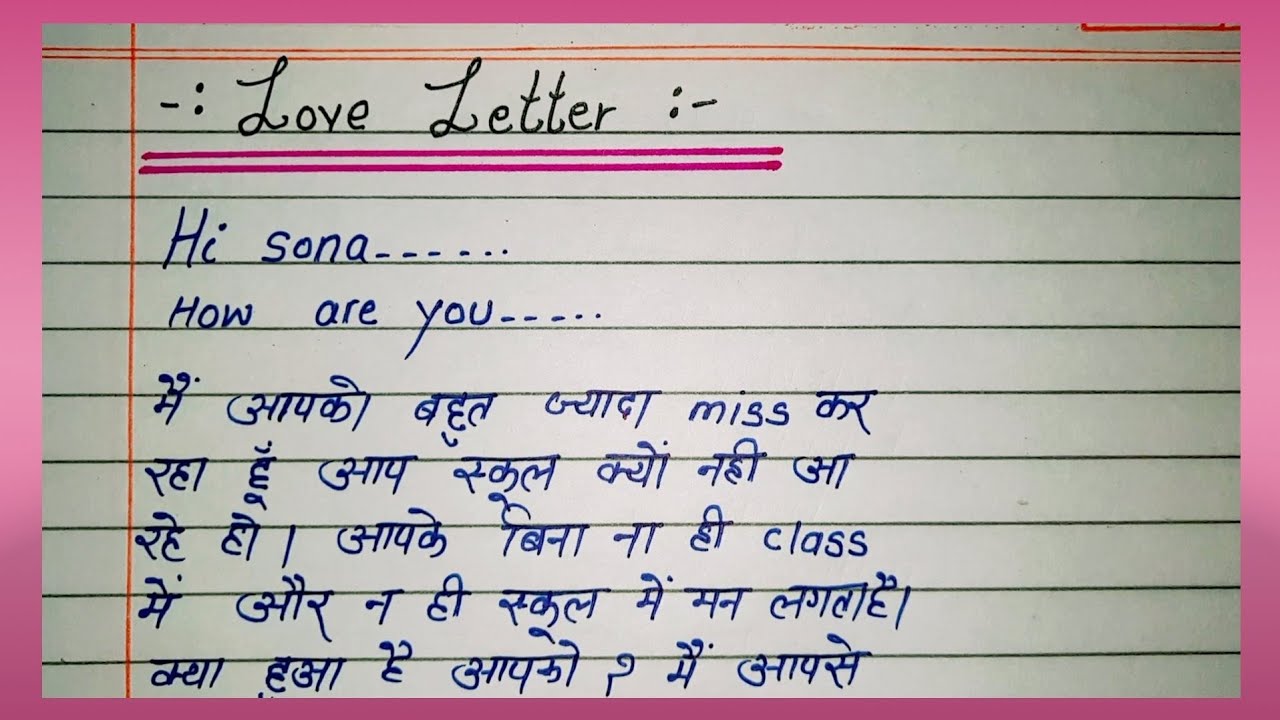 -: Love Letter :-
Hi sona------
How are you-----
मैं आपको बहुत ज्यादा miss कर
रहा हूँ आप स्कूल क्यों नही आ
रहे हो। आपके बिना ना ही class
में और न ही स्कूल में मन लगता है।
क्या हुआ है आपको ? मैं आपसे